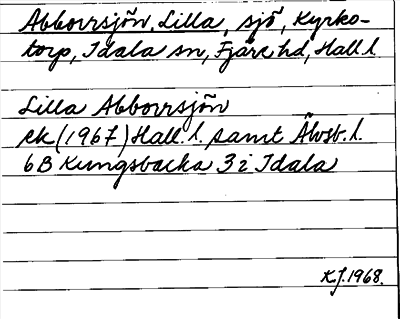 Abborrsjön, Lilla, sjö, Kyrko-
torp, Idala sn, Fjäre hd, Hall. l.
Lilla Abborrsjön
ek (1967) Hall. l. samt Älvsb. l.
6B Kungsbacka 3i Idala
KJ. 1968.